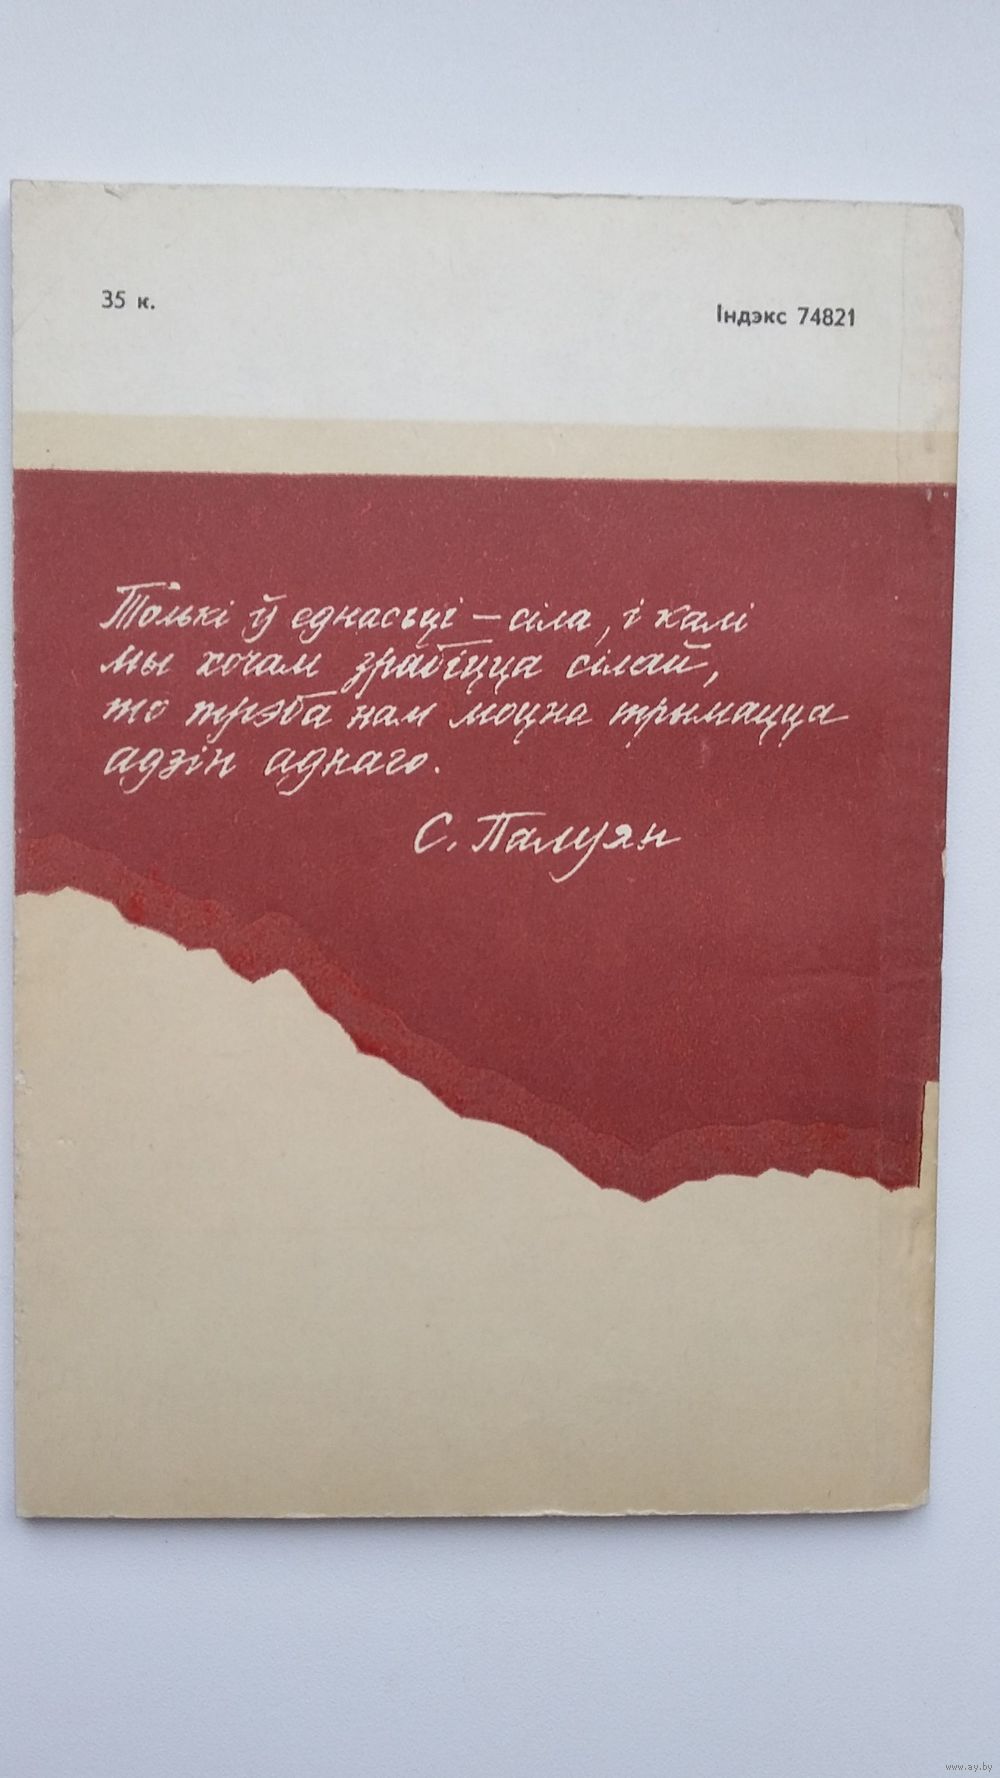 35 к.
Індэкс 74821
Толькі ў еднасьці – сіла, і калі
мы хочам зрабіцца сілай,
то трэба нам моцна трымацца
адзін аднаго.
С. Палуян
www.ay.by